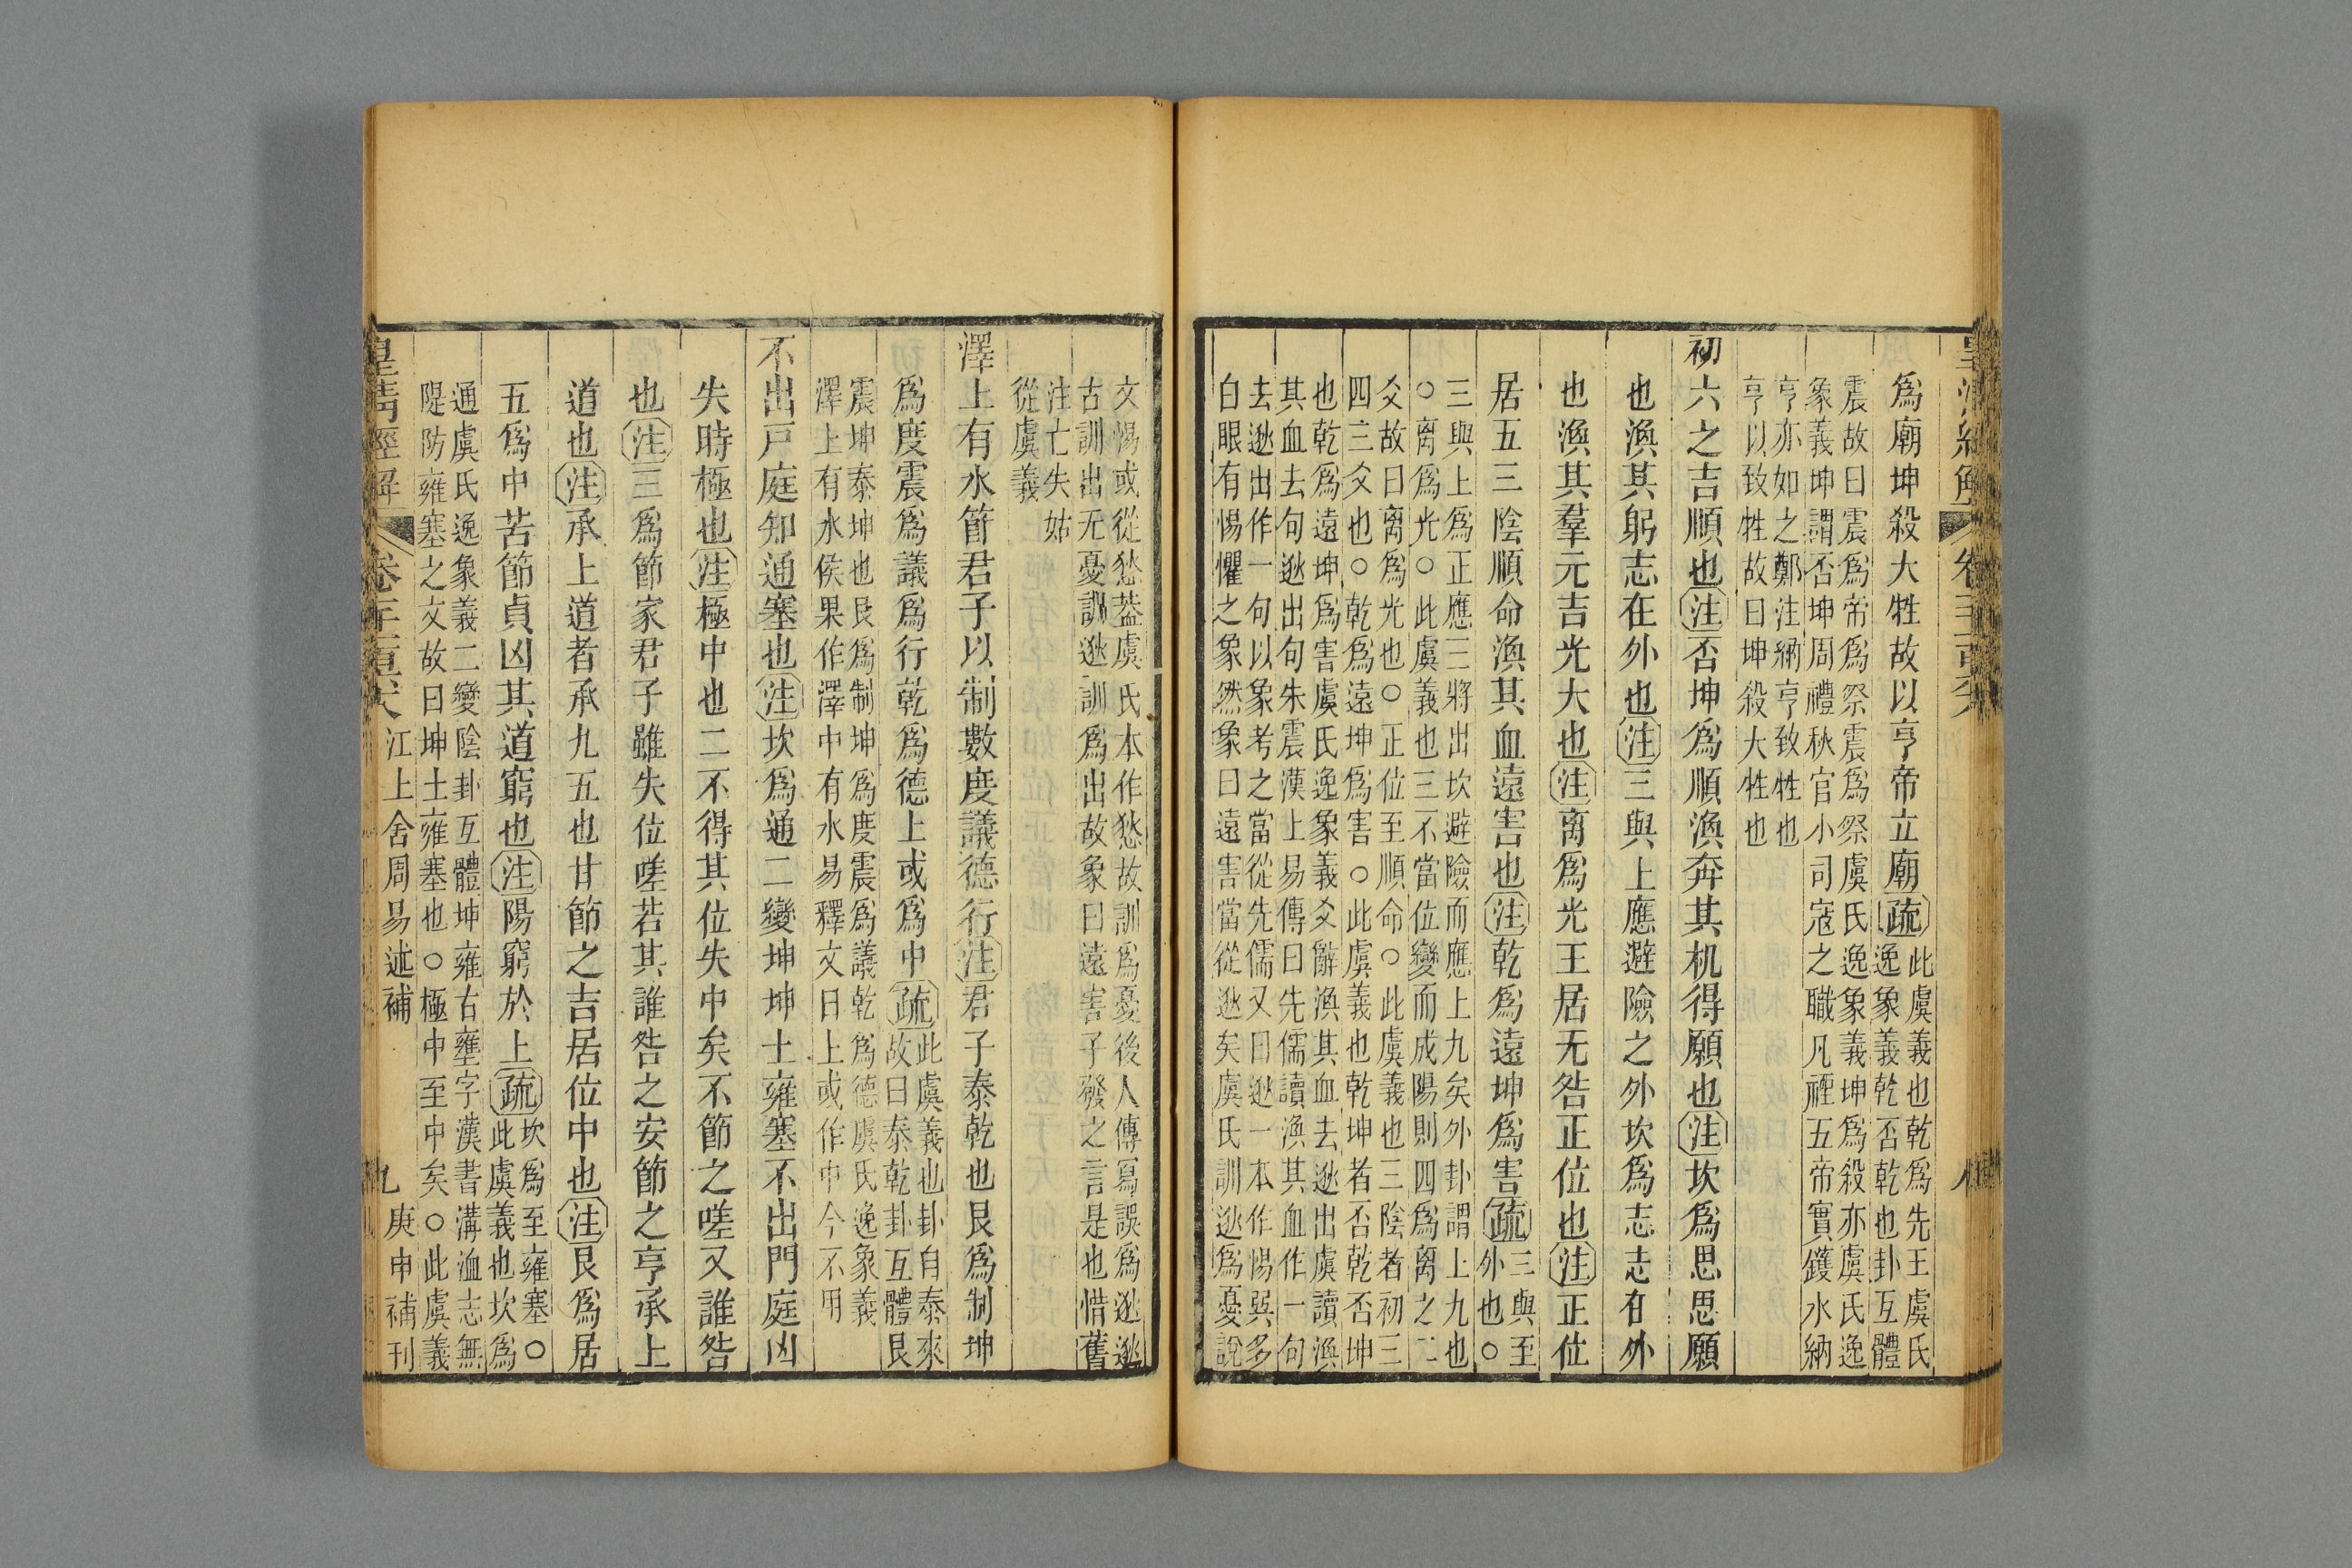 爲廟坤殺大牲故以亨帝立廟疏此虞義也乾爲先王虞氏
逸象義乾否乾也卦互體
震故曰震爲帝爲祭震爲祭虞氏逸象義坤爲殺亦虞氏逸
象義坤謂否坤周禮秋官小司寇之職凡禋五帝實鑊水納
亨亦如之鄭注納亨致牲也
亨以致牲故曰坤殺大牲也
初六之吉順也注否坤爲順渙奔其机得願也注坎爲思思願
也渙其躬志在外也注三與上應避險之外坎爲志志在外
也渙其羣元吉光大也注离爲光王居无咎正位也注正位
居五三陰順命渙其血遠害也注乾爲遠坤爲害疏三與至
外也○
三與上爲正應三將出坎避險而應上九矣外卦謂上九也
○离爲光○此虞義也三不當位變而成陽則四爲离之二
爻故曰离爲光也○正位至順命○此虞義也三陰者初三
四三爻也○乾爲遠坤爲害○此虞義也乾坤者否乾否坤
也乾爲遠坤爲害虞氏逸象義爻辭渙其血去逖出虞讀渙
其血去句逖出句朱震漢上易傳曰先儒讀渙其血作一句
去逖出作一句以象考之當從先儒又曰逖一本作惕巽多
白眼有惕懼之象然象曰遠害當從逖矣虞氏訓逖爲憂說
文惕或從愁葢虞氏本作愁故訓爲憂後人傳寫誤爲逖逖
古訓出无憂訓逖訓爲出故象曰遠害子發之言是也惜舊
注亡失姑
從虞義
澤上有水節君子以制數度議德行注君子泰乾也艮爲制坤
爲度震爲議爲行乾爲德上或爲中疏此虞義也卦自泰來
故曰泰乾卦互體艮
震坤泰坤也艮爲制坤爲度震爲議乾爲德虞氏逸象義
澤上有水侯果作澤中有水易釋文曰上或作中今不用
不出戸庭知通塞也注坎爲通二變坤坤土雍塞不出門庭凶
失時極也注極中也二不得其位失中矣不節之嗟又誰咎
也注三爲節家君子雖失位嗟若其誰咎之安節之亨承上
道也注承上道者承九五也甘節之吉居位中也注艮爲居
五爲中苦節貞凶其道窮也注陽窮於上疏坎爲至雍塞○
此虞義也坎爲
通虞氏逸象義二變陰卦互體坤雍古壅字漢書溝洫志無
隄防雍塞之文故曰坤土雍塞也○極中至中矣○此虞義
皇淸經解 江上舍周易述補 九 庚申補刊